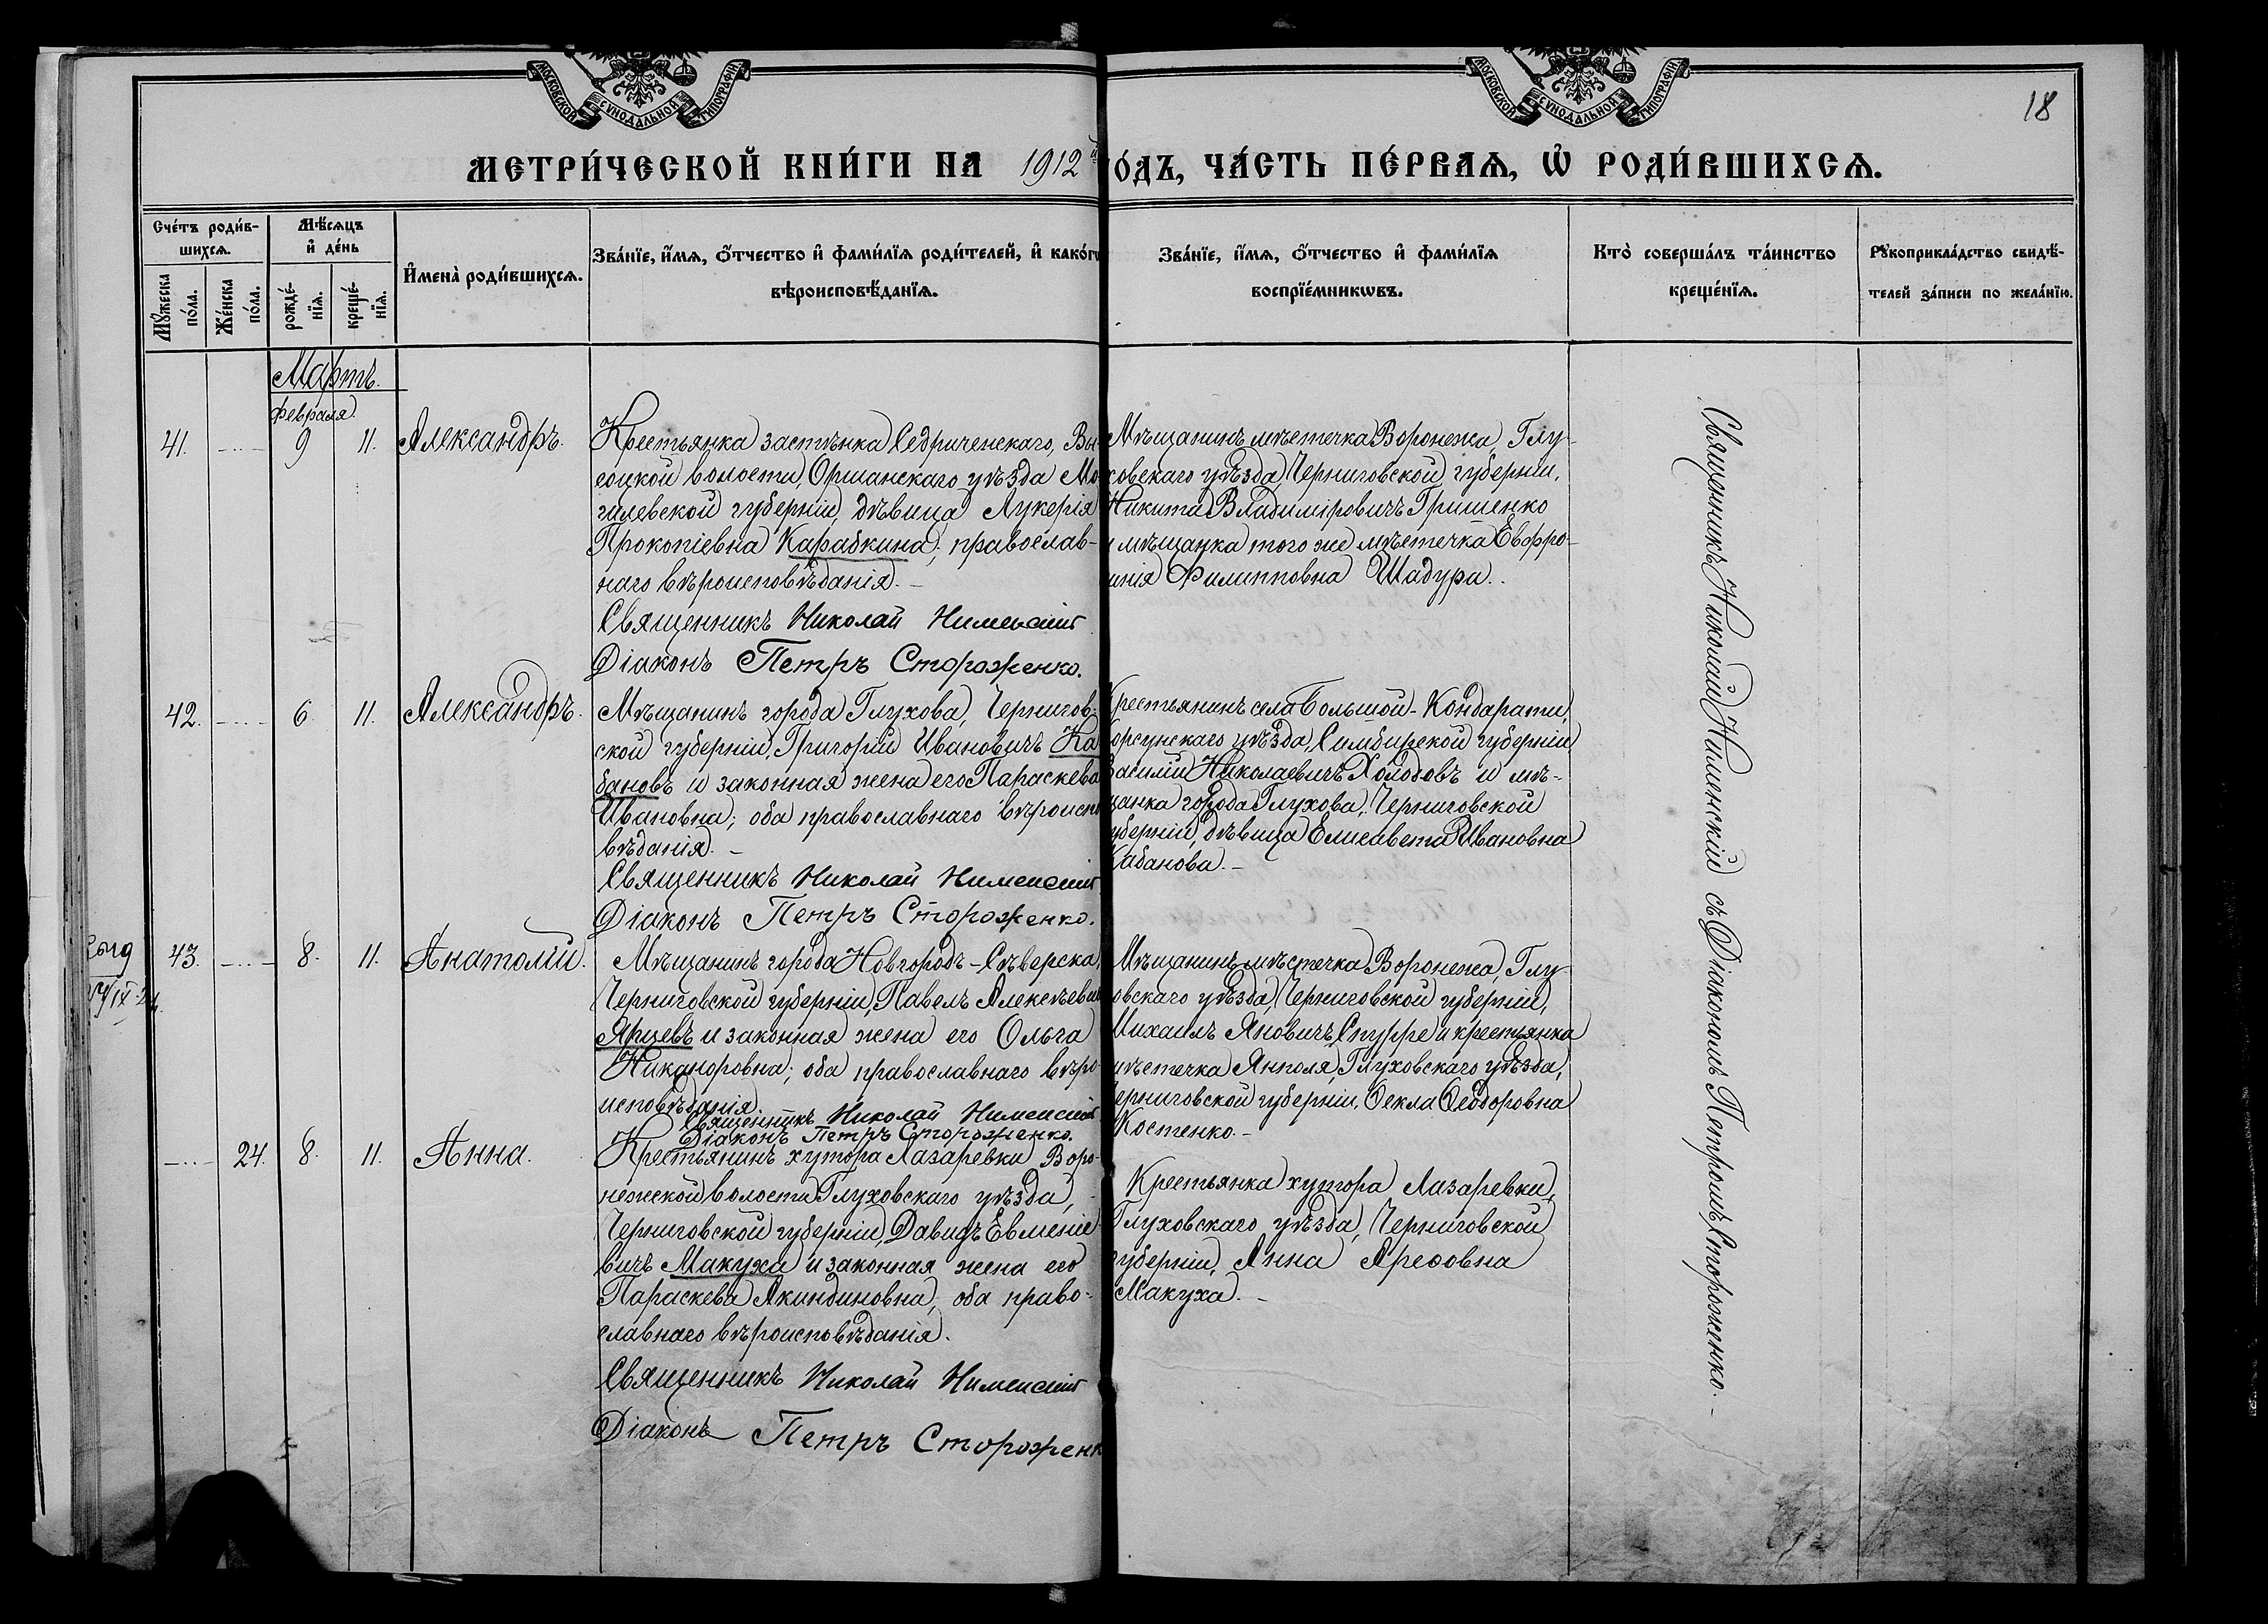 МОСКОВСКОЙ СѴНОДАЛЬНОЙ ТИПОГРАФІИ
МОСКОВСКОЙ СѴНОДАЛЬНОЙ ТИПОГРАФІИ
18
МЕТРИ́ЧЕСКОЙ КНИ́ГИ НА 1912й
О́ДЪ, ЧА́СТЬ ПЕ́РВАѦ, Ѡ҆ РОДИ́ВШИХСѦ.
Сче́тъ роди́в-
шихсѧ.
Мꙋ́жеска по́ла.
Же́нска по́ла.
Мѣ́сѧцъ
и҆ де́нь
рожде́-
нїѧ.
креще́-
нїѧ.
И҆мена̀ роди́вшихсѧ.
Зва́нїе, и҆́мѧ, ѻ҆́тчество и҆ фами́лїѧ роди́телей, и҆ како́гѡ
вѣроисповѣ́данїѧ.
Зва́нїе, и҆́мѧ, ѻ҆́тчество и҆ фами́лїѧ
воспрїе́мникѡвъ.
Кто̀ соверша́лъ та́инство
креще́нїѧ.
Рꙋкоприкла́дство свидѣ́-
телей за́писи по жела́нїю.
Мартъ.
февраля
41. 9 11. Александръ.
Крестьянка застѣнка Седриченскаго, Вы-
соцкой волости, Оршанскаго уѣзда Мо
гилевской губерніи, дѣвица Лукерія
Прокопіевна Карабкина; православ-
наго вѣроисповѣданія. –
Священникъ Николай Нименскій
Діаконъ Петръ Стороженко.
Мѣщанинъ мѣстечка Воронежа, Глу-
ховскаго уѣзда, Черниговской губерніи,
Никита Владиміровичъ Гришенко
и мѣщанка того же мѣстечка Евфро-
инія Филипповна Шадура.
42. 6. 11. Александръ.
Мѣщанинъ города Глухова, Чернигов-
ской губерніи, Григорій Ивановичъ Ка
бановъ и законная жена его Параскева
Ивановна; оба православнаго вѣроиспо
вѣданія. –
Священникъ Николай Нименскій
Діаконъ Петръ Стороженко.
Крестьянинъ села Большой-Кондарати,
Корсунскаго уѣзда, Симбирской губерніи
Василій Николаевичъ Холодовъ и мѣ-
щанка города Глухова, Черниговской
губерніи, дѣвица Елисавета Ивановна
Кабанова. –
43. 8. 11. Анатолій.
Мѣщанинъ города Новгородъ-Сѣверска,
Черниговской губерніи, Павелъ Алексѣевич
Ярцевъ и законная жена его Ольга
Никаноровна; оба православнаго вѣро-
исповѣданія.
Священникъ Николай Нименскій
Діаконъ Петръ Стороженко.
Мѣщанинъ мѣстечка Воронежа, Глу-
овскаго уѣзда, Черниговской губерніи,
Михаилъ Яновичъ Спурре и крестьянка
мѣстечка Янполя, Глуховскаго уѣзда,
Черниговской губерніи, Ѳекла Ѳеодоровна
Костенко. –
24. 8. 11. Анна.
Крестьянинъ хутора Лазаревки Воро-
нежской волости Глуховскаго уѣзда,
Черниговской губерніи, Давидъ Евменіе
вичъ Макуха и законная жена его
Параскева Акиндиновна, оба право-
славнаго вѣроисповѣданія.
Священникъ Николай Нименскій
Діаконъ Петръ Стороженк
Крестьянка хутора Лазаревки,
Глуховскаго уѣзда, Черниговской
губерніи, Анна Ареѳовна
Макуха. –
Священникъ Николай Нименскій съ Діакономъ Петромъ Стороженко. –